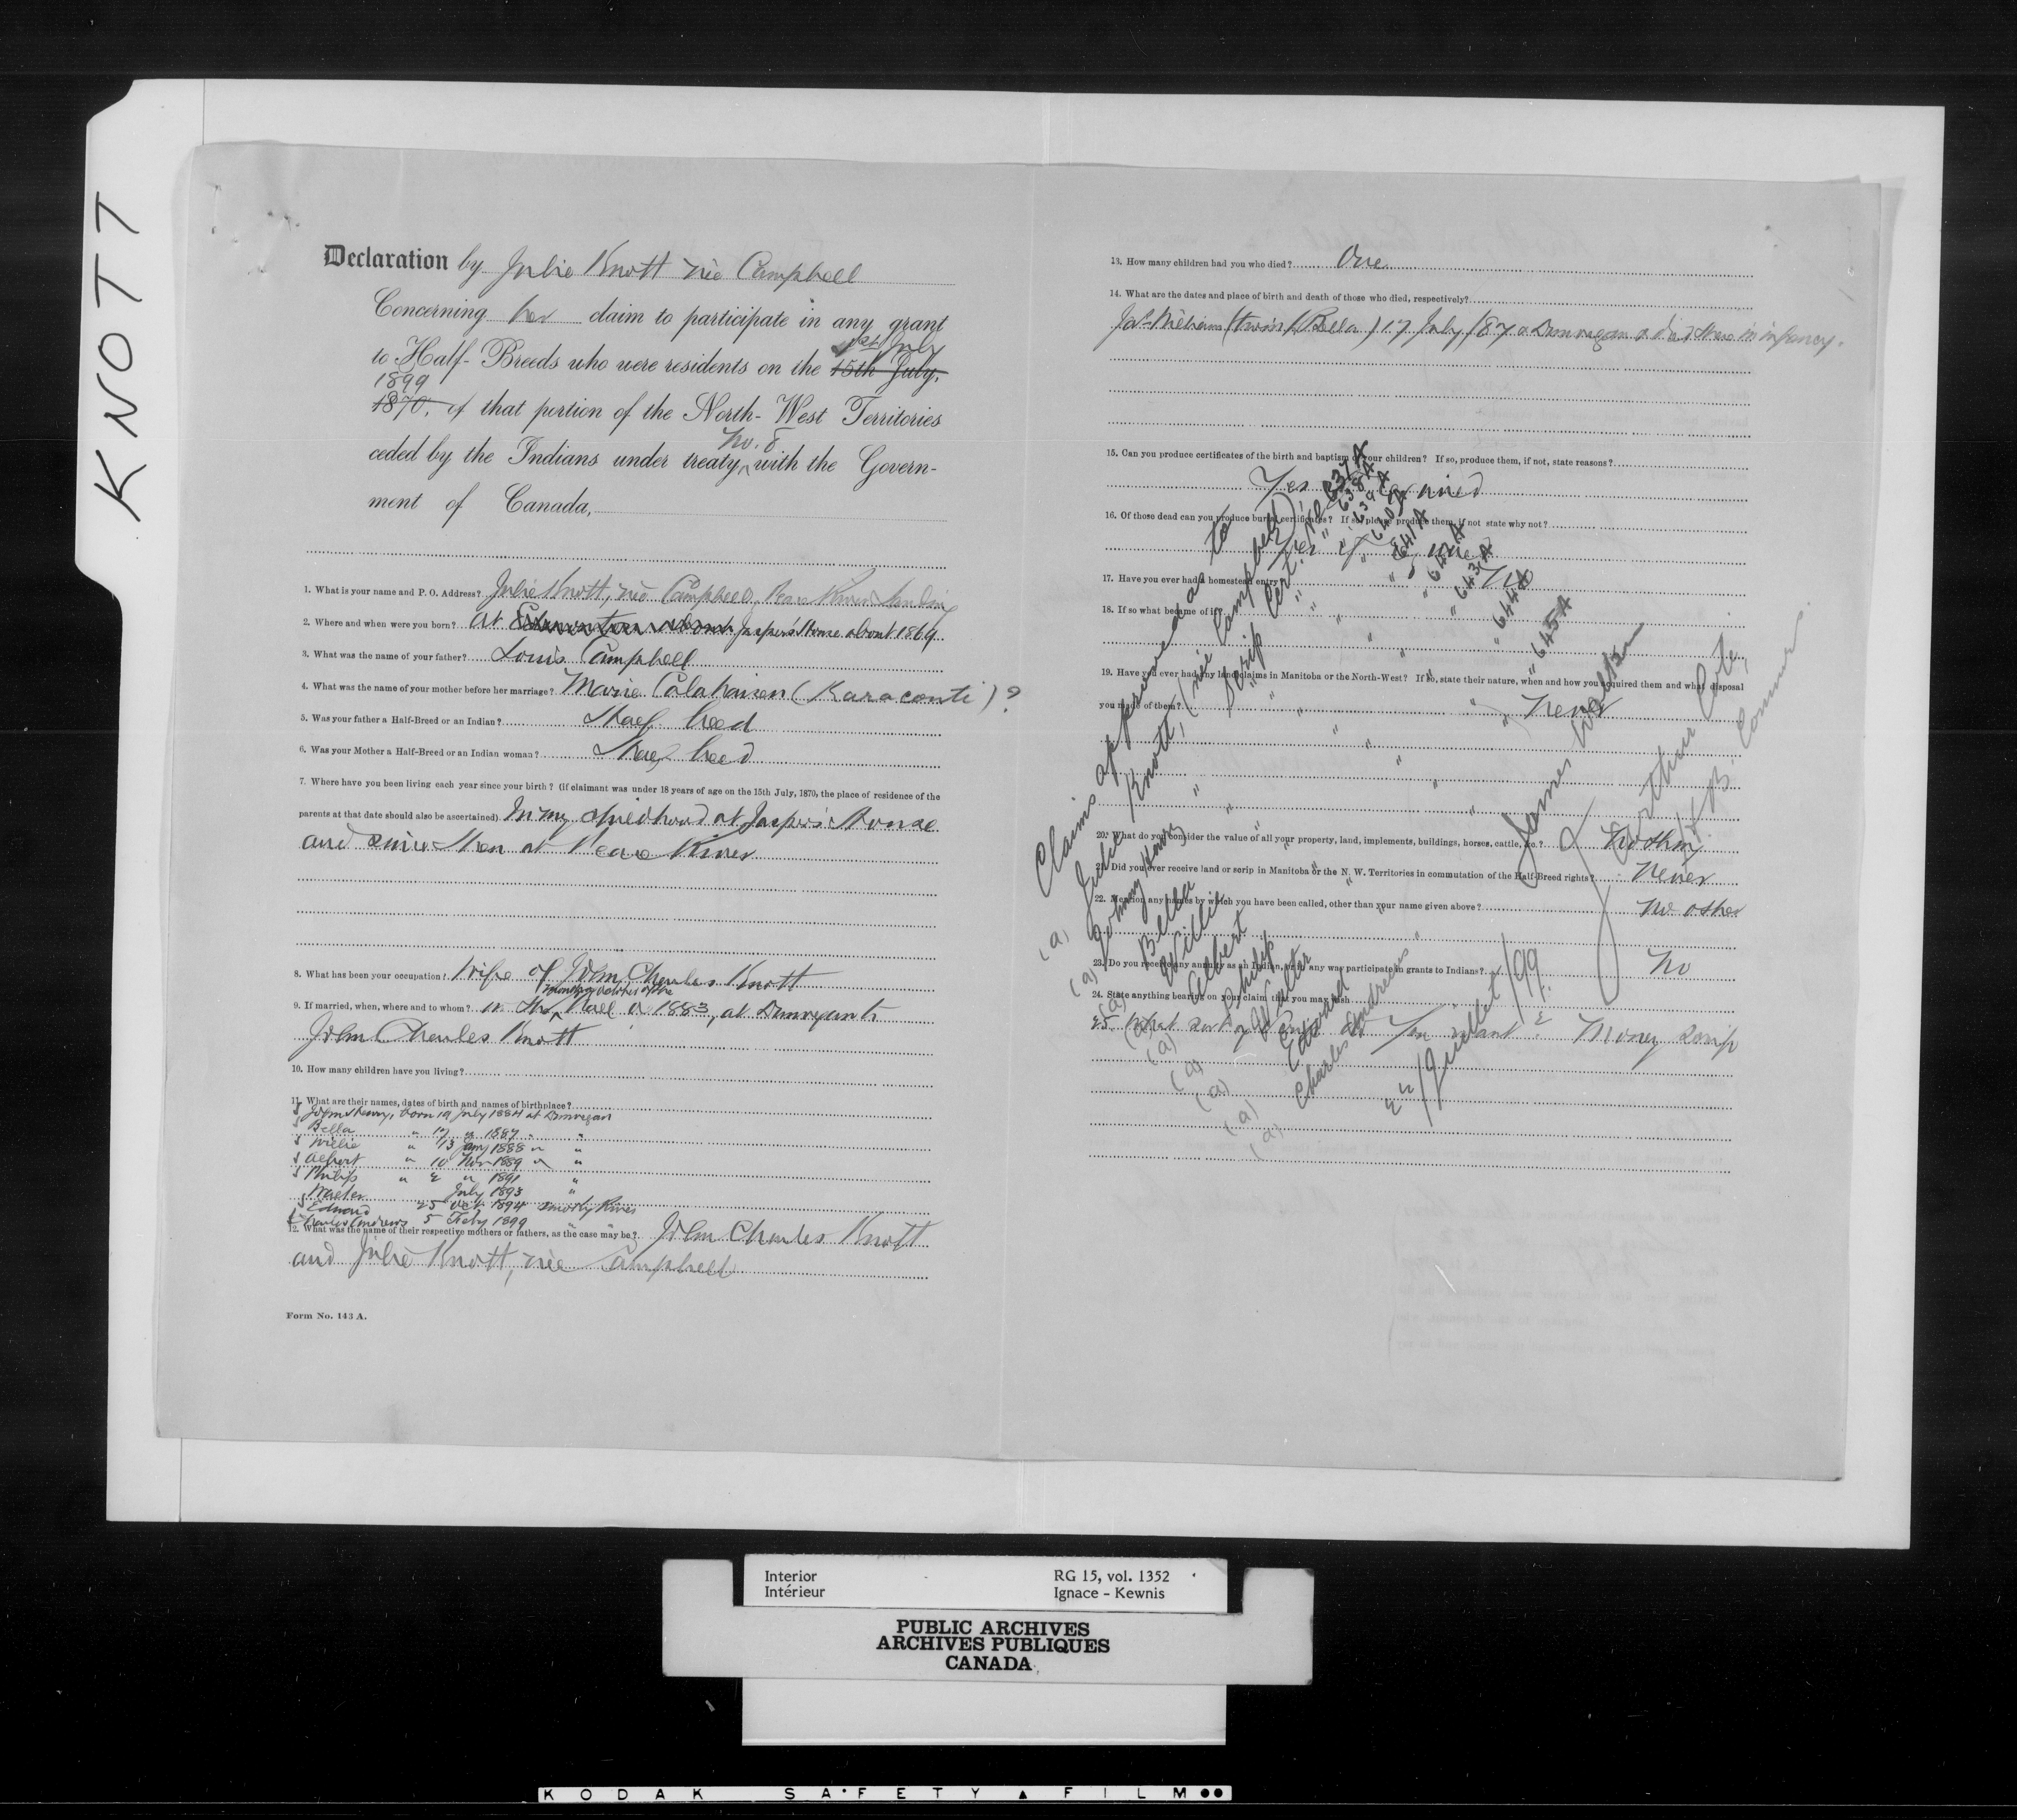 KNOTT
Declaration by Julie Knott née Campbell
Concerning her claim to participate in any grant
1st July
to Half-Breeds who were residents on the 15th July,
1899
1870, of that portion of the North-West Territories
No. 8
ceded by the Indians under treaty, with the Govern-
ment of Canada,
1. What is your name and P. O. Address? Julie Knott, née Campbell, Peace River Landing
2. Where and when were you born? At Jasper's House about 1869
3. What was the name of your father? Louis Campbell
4. What was the name of your mother before her marriage? Marie Calahaisen (Karaconti)?
5. Was your father a Half-Breed or an Indian? Half breed
6. Was your Mother a Half-Breed or an Indian woman? Half breed
7. Where have you been living each year since your birth? (if claimant was under 18 years of age on the 15th July, 1870, the place of residence of the
parents at that date should also be ascertained). In my childhood at Jasper's House
and since then at Peace River
8. What has been your occupation? Wife of John Charles Knott
9. If married, when, where and to whom? in the Fall of 1883, at Dunvegan to
John Charles Knott
10. How many children have you living?
11. What are their names, dates of birth and names of birthplace?
John Henry, born 19 July 1884 at Dunvegan
Bella " 17 " 1887 " "
Willie " 13 Jany 1888 " "
Albert " 10 Nov 1889 " "
Philip " 2 " 1891 "
Walter July 1893 "
Edward 25 Oct 1894 Smoky River
Charles Andrews 5 Feby 1899
12. What was the name of their respective mothers or fathers, as the case may be? John Charles Knott
and Julie Knott, née Campbell
Form No. 143 A.
13. How many children had you who died? One
14. What are the dates and place of birth and death of those who died, respectively?
Jas. William (twin of Bella) 17 July /87 at Dunvegan & died there in infancy.
15. Can you produce certificates of the birth and baptism of your children? If so, produce them, if not, state reasons?
Yes
16. Of those dead can you produce burial certificates? If so, please produce them, if not state why not?
17. Have you ever had a homestead entry? No
18. If so what became of it?
19. Have you ever had any land claims in Manitoba or the North-West? If so, state their nature, when and how you acquired them and what disposal
you made of them? Never
20. What do you consider the value of all your property, land, implements, buildings, horses, cattle, &c.? Nothing
21. Did you ever receive land or scrip in Manitoba or the N. W. Territories in commutation of the Half-Breed rights? Never
22. Mention any names by which you have been called, other than your name given above? No other
23. Do you receive any annuity as an Indian, or in any way participate in grants to Indians? No
24. State anything bearing on your claim that you may wish
25 What sort of Scrip do you want? Money Scrip
Claims approved as to
(a) Julie Knott, (née Campbell) Scrip Cert. No 637A
(a) Johnny Henry " " " 638A
(a) Bella " " " 639A
(a) Willie " " " 640A
(a) Albert " " " 641A
(a) Philip " " " 642A
(a) Walter " " " 643A
(a) Edward " " " 644A
(a) Charles Andrews " " " 645A
James Walker
J. Arthur Coté,
H. B. Commr.
22/Juillet/99.
Interior RG 15, vol. 1352
Intérieur Ignace - Kewnis
PUBLIC ARCHIVES
ARCHIVES PUBLIQUES
CANADA
KODAK SAFETY FILM